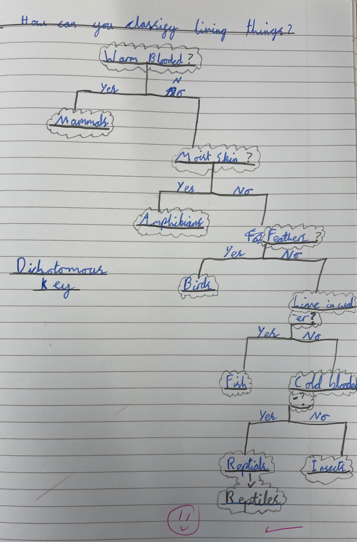 How can you classify living things?
Warm Blooded?
Yes
No
Mammals
Moist Skin ?
Yes No
Amphibians
Feathers ?
Yes No
Dichotomous
Key
Birds
Live in wat
er?
Yes No
Fish Cold bloode
?
Yes No
Reptials Insects
Reptiles